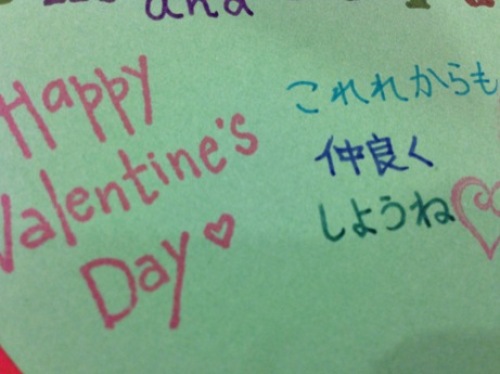 and
Happy
Valentine's
Day
これれからも
仲良く
しようね